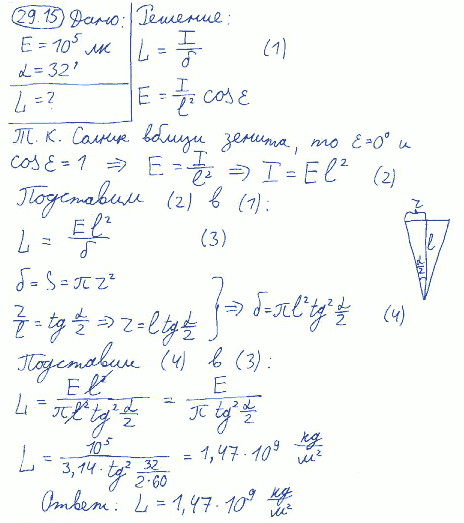 29.15 Дано: Решение:
E = 10⁵ лк
α = 32'
L = ?
L = I/σ (1)
E = I/l² cos ε
Т. к. Солнце вблизи зенита, то ε=0° и
cos ε = 1 ⇒ E = I/l² ⇒ I = El² (2)
Подставим (2) в (1):
L = El²/σ (3)
σ = S = πr²
r/l = tg α/2 ⇒ r = l tg α/2 } ⇒ σ = πl² tg² α/2 (4)
r
l
α/2
Подставим (4) в (3):
L = El²/πl² tg² α/2 = E/π tg² α/2
L = 10⁵/3,14 · tg² 32/2·60 = 1,47 · 10⁹ кд/м²
Ответ: L = 1,47 · 10⁹ кд/м²